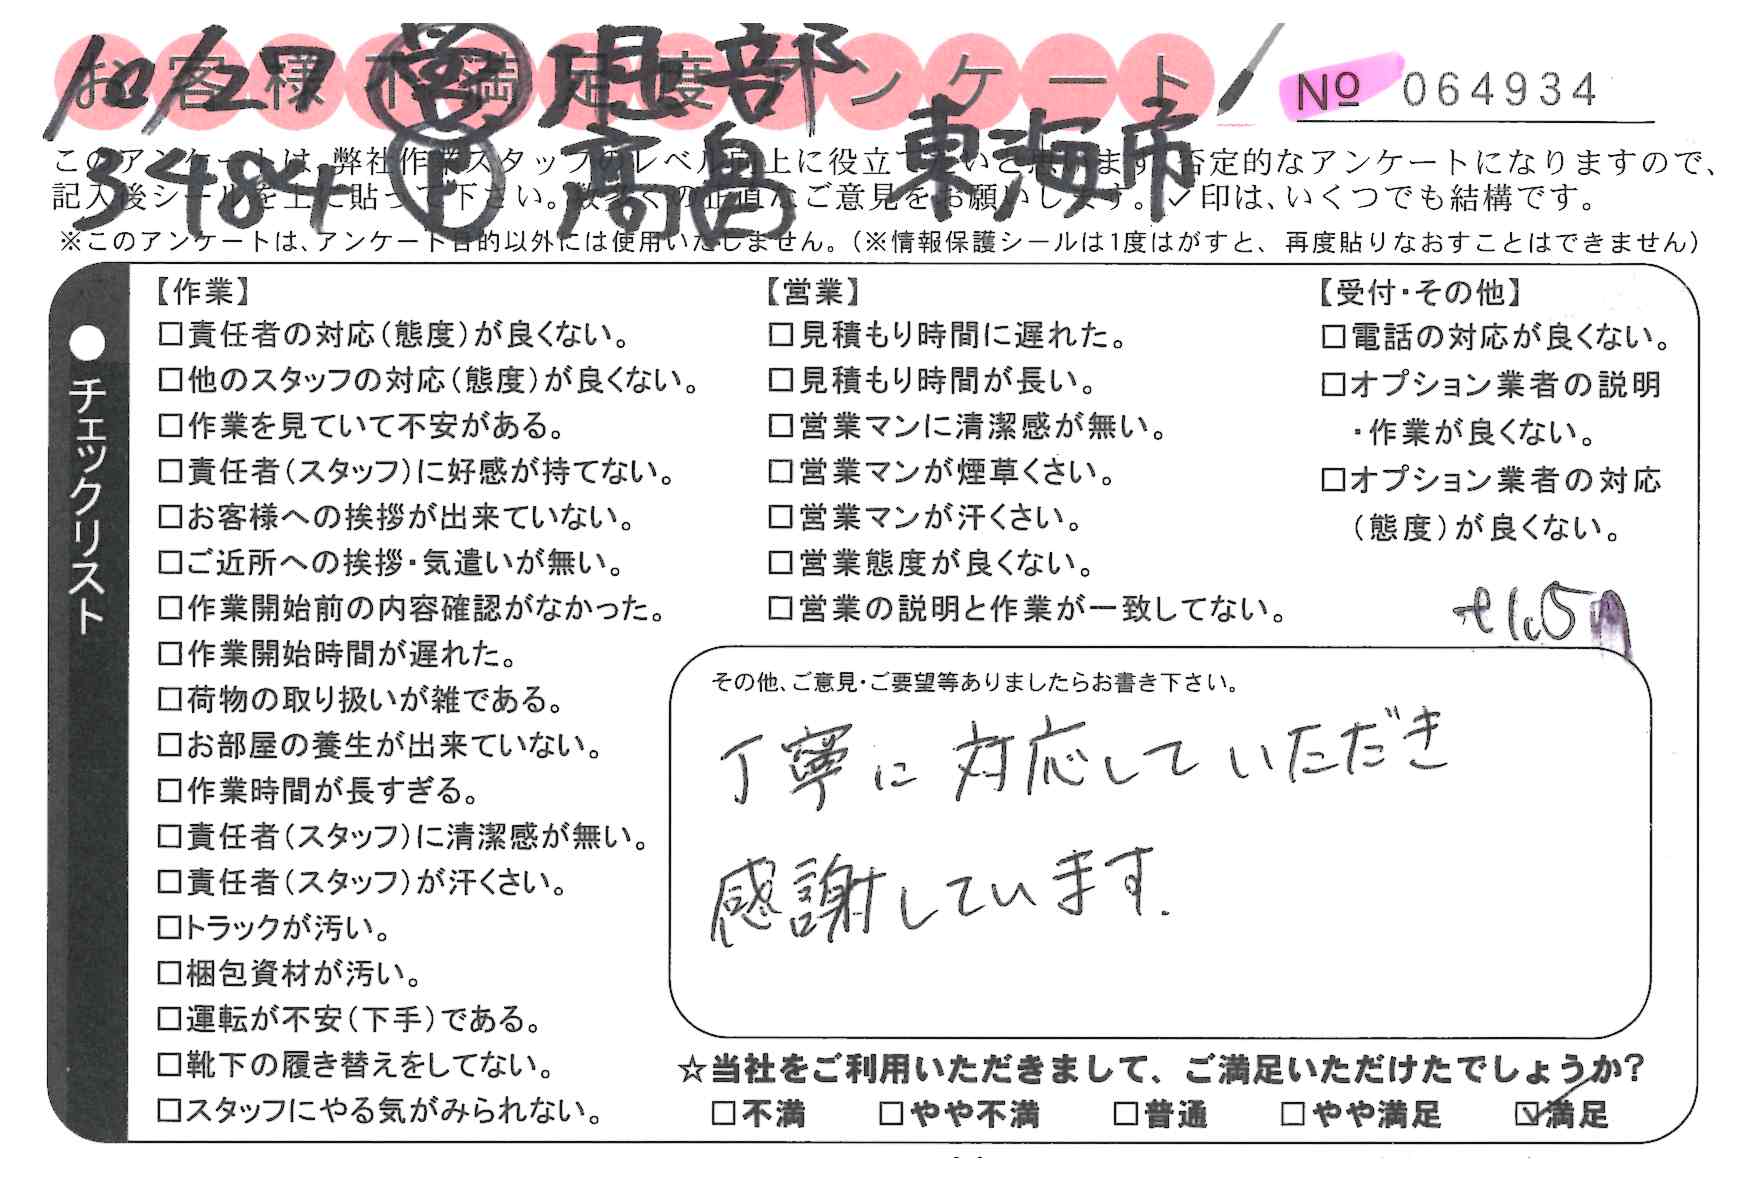 お客様不満足度アンケート
10/27 営 服部
№ 064934
3484 作 高畠 東海市
このアンケートは、弊社作業スタッフのレベル向上に役立てたいと思います。否定的なアンケートになりますので、
記入後シールを上に貼って下さい。数多くの正直なご意見をお願いします。✓印は、いくつでも結構です。
※このアンケートは、アンケート目的以外には使用いたしません。（※情報保護シールは1度はがすと、再度貼りなおすことはできません）
●チェックリスト
【作業】
□責任者の対応（態度）が良くない。
□他のスタッフの対応（態度）が良くない。
□作業を見ていて不安がある。
□責任者（スタッフ）に好感が持てない。
□お客様への挨拶が出来ていない。
□ご近所への挨拶・気遣いが無い。
□作業開始前の内容確認がなかった。
□作業開始時間が遅れた。
□荷物の取り扱いが雑である。
□お部屋の養生が出来ていない。
□作業時間が長すぎる。
□責任者（スタッフ）に清潔感が無い。
□責任者（スタッフ）が汗くさい。
□トラックが汚い。
□梱包資材が汚い。
□運転が不安（下手）である。
□靴下の履き替えをしてない。
□スタッフにやる気がみられない。
【営業】
□見積もり時間に遅れた。
□見積もり時間が長い。
□営業マンに清潔感が無い。
□営業マンが煙草くさい。
□営業マンが汗くさい。
□営業態度が良くない。
□営業の説明と作業が一致してない。
【受付・その他】
□電話の対応が良くない。
□オプション業者の説明
・作業が良くない。
□オプション業者の対応
（態度）が良くない。
その他、ご意見・ご要望等ありましたらお書き下さい。
丁寧に対応していただき
感謝しています.
☆当社をご利用いただきまして、ご満足いただけたでしょうか?
□不満 □やや不満 □普通 □やや満足 ☑満足